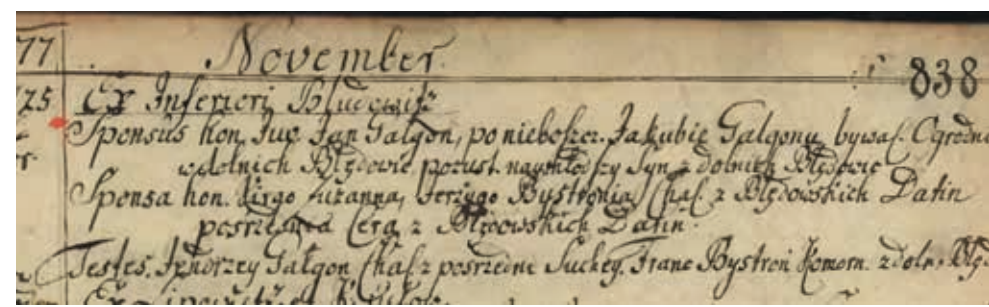 77 November 838
25 Ex Inferiori Bludowitz
Sponsus hon. Juv. Jan Galgon, po nieboszcz. Jakubie Galgonu, bywał. Ogrodn
w dolnich Błędowic pozust. naymłodszy Syn z dolnich Błędowic
Sponsa hon. Virgo Zuzanna, Jerzygo Bystronia, Chał. z Błędowskich Datin
posrzednia Cera z Błędowskich Datin.
Testes. Jendrzey Gałgon Chał. z posrzedni Suchey. Franc Bystroń Komorn. z doln. Błęd
Ex